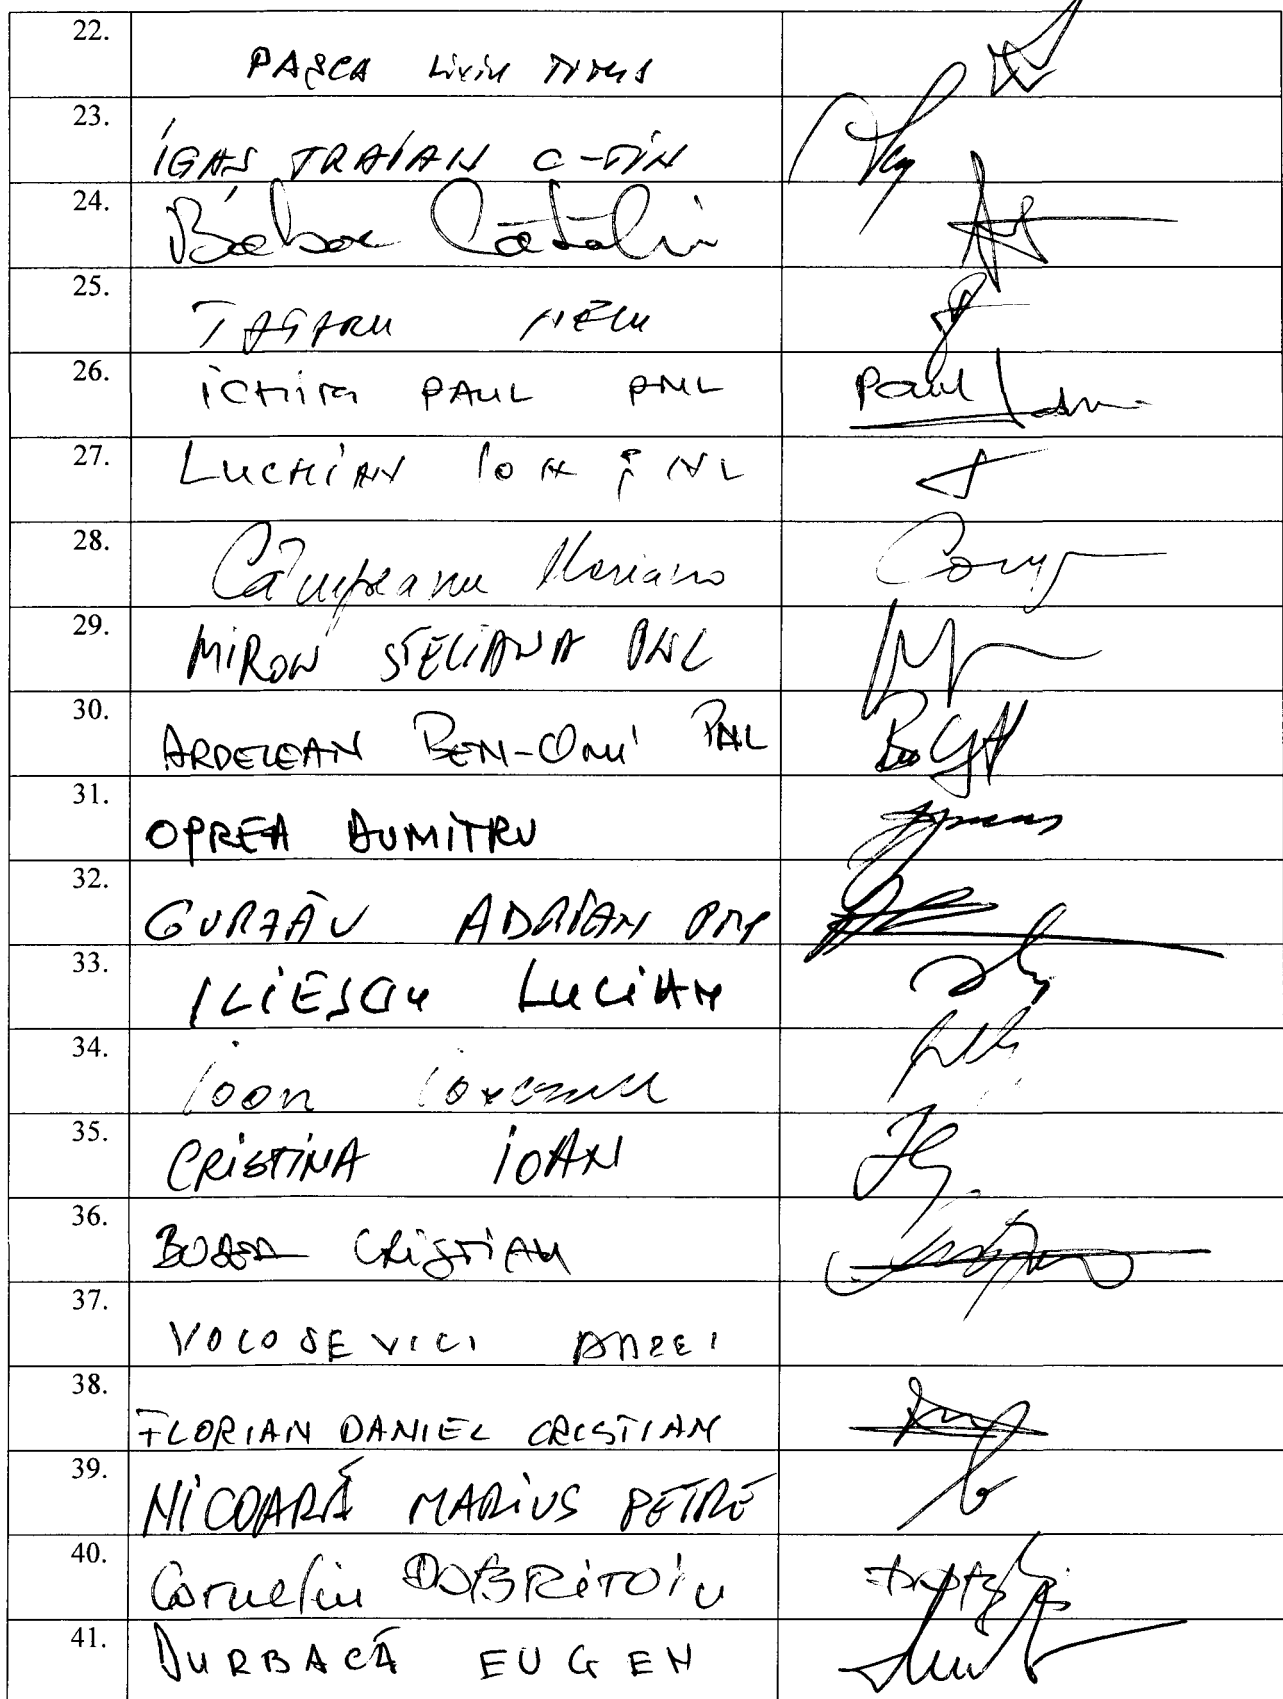 22. PAȘCA Liviu TITUS
23. IGAȘ TRAIAN C-TIN
24. Boboc Cătălin
25. TĂTARU NELU
26. ICHIM PAUL PNL
27. LUCHIAN ION PNL
28. Câmpeanu Mariana
29. MIRON STELIANA PNL
30. ARDELEAN BEN-ONI PNL
31. OPREA DUMITRU
32. GURZĂU ADRIAN PMP
33. ILIESCU LUCIAN
34. Ioan
35. CRISTINA IOAN
36. CRISTIAN
37. VOLOSEVICI ANDREI
38. FLORIAN DANIEL CRISTIAN
39. NICOARĂ MARIUS PETRE
40. Corneliu DOBRIȚOIU
41. DURBACĂ EUGEN